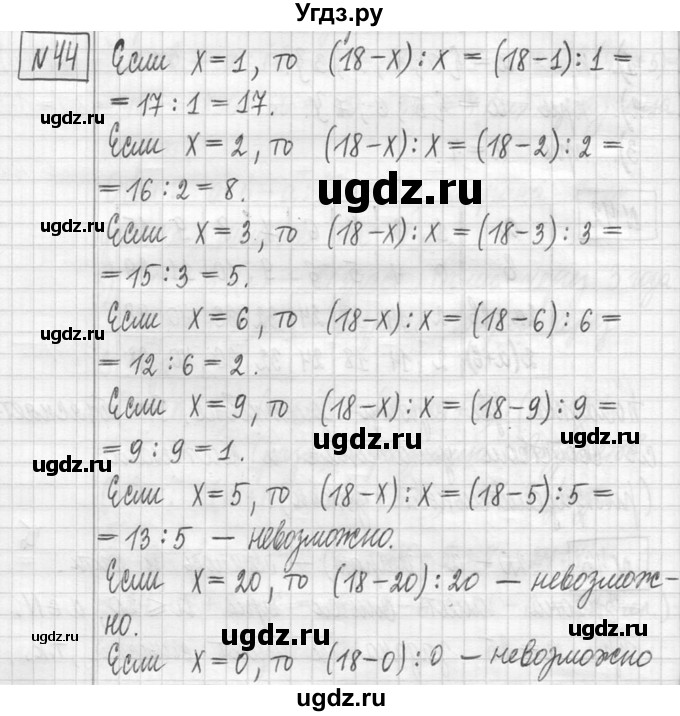 Угдз.ру
№44 Если x=1, то (18-x):x=(18-1):1=
=17:1=17.
ugdz.ru
Если x=2, то (18-x):x=(18-2):2=
=16:2=8.
ugdz.ru
ugdz.ru
Если x=3, то (18-x):x=(18-3):3=
=15:3=5.
Если x=6, то (18-x):x=(18-6):6=
ugdz.ru
=12:6=2.
Если x=9, то (18-x):x=(18-9):9=
ugdz.ru
ugdz.ru
=9:9=1.
ugdz.ru
Если x=5, то (18-x):x=(18-5):5=
=13:5 – невозможно.
Если x=20, то (18-20):20 – невозмож-
но.
ugdz.ru
ugdz.ru
ugdz.ru
Если x=0, то (18-0):0 – невозможно
ugdz.ru